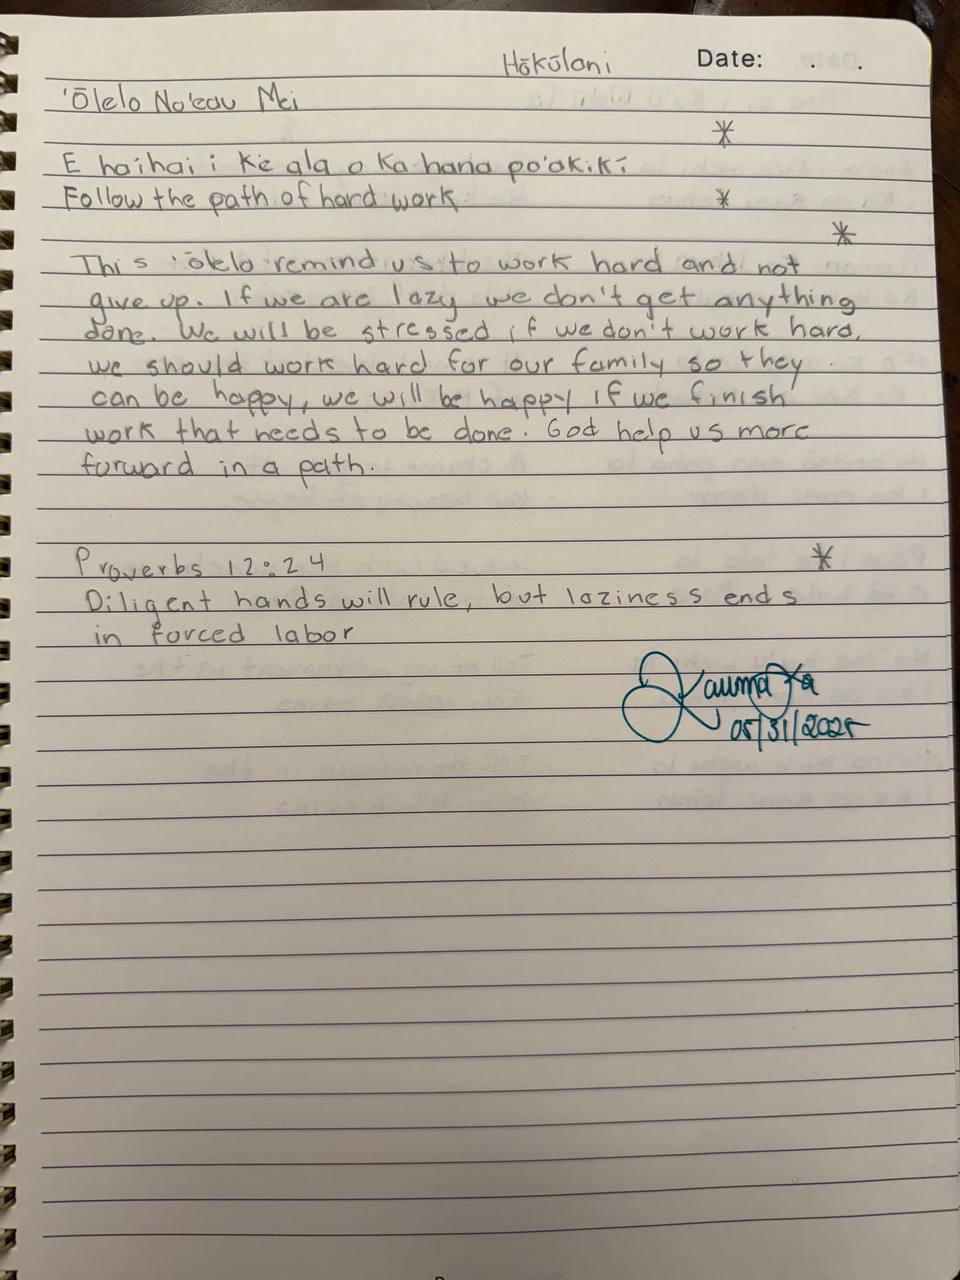 Hōkūlani Date: . .
'Ōlelo No'eau Mei
*
E haihai i ke ala o ka hana po'okiki
Follow the path of hard work *
*
This 'ōlelo remind us to work hard and not
give up. If we are lazy we don't get anything
done. We will be stressed if we don't work hard,
we should work hard for our family so they
can be happy, we will be happy if we finish
work that needs to be done. God help us more
forward in a path.
Proverbs 12:24 *
Diligent hands will rule, but laziness ends
in forced labor
05/31/2025